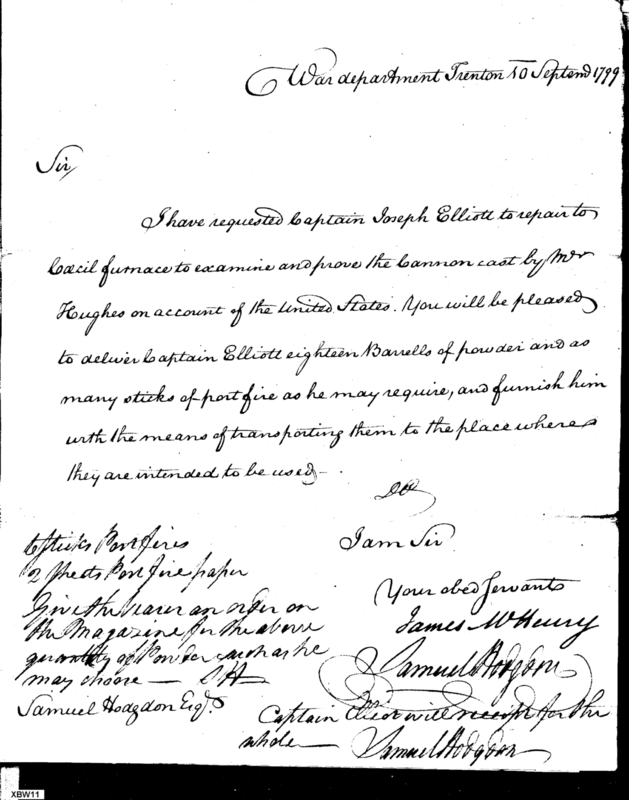 War department Trenton 10 Septemb 1799
Sir,
I have requested Captain Joseph Elliott to repair to
Cæcil furnace to examine and prove the Cannon cast by Mr
Hughes on account of the United States. You will be pleased
to deliver Captain Elliott eighteen Barrells of powder and as
many sticks of port fire as he may require, and furnish him
with the means of transporting them to the place where
they are intended to be used —
I am Sir
Your obed Servants
James McHenry
Samuel Hodgdon
6 sticks Port fires
2 Sheets Port fire paper
Give the bearer an order on
the Magazine for the above
quantity of Powder such as he
may choose — SH
Samuel Hodgdon Esqr.
Captain Elliot will receipt for the
whole —
Samuel Hodgdon
XBW11